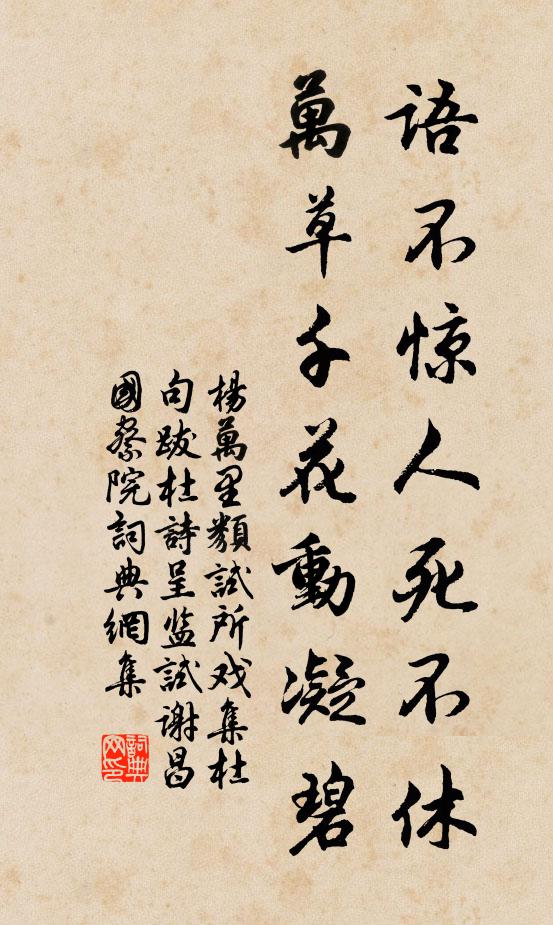 語不惊人死不休
萬草千花動凝碧
楊萬里類試所戏集杜
句跋杜詩呈监試谢昌
國察院詞典網集
詞典
网印